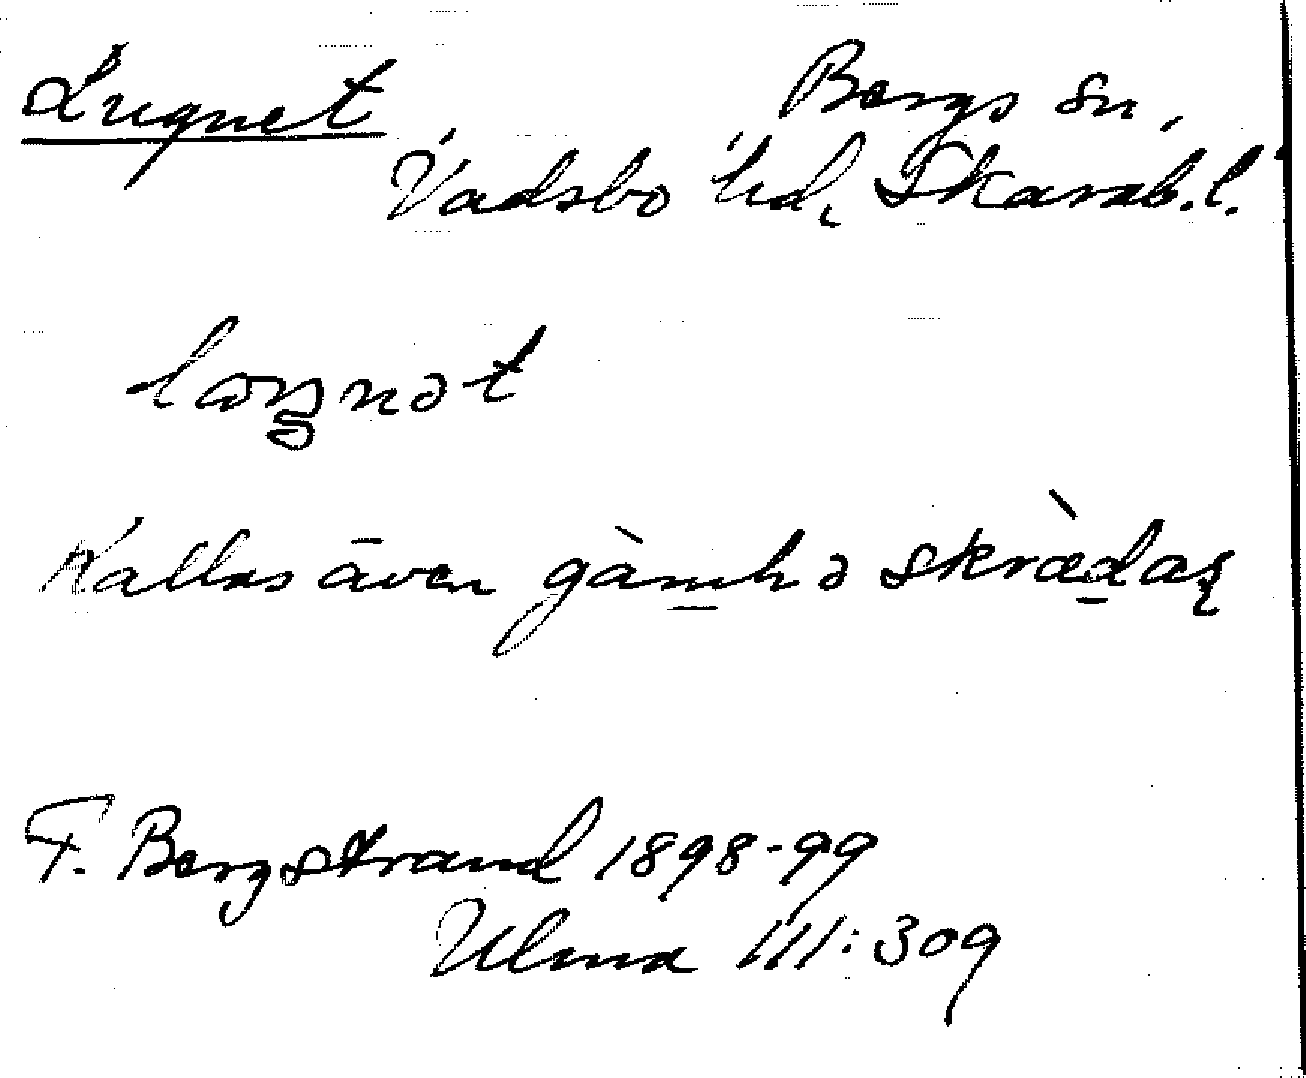 Lugnet Bergs sn,
Vadsbo hd, Skarab. l.
lɷŋnət
Kallas även gàmḻə skrædaṣ
F. Bergstrand 1898-99
Ulma 111:309